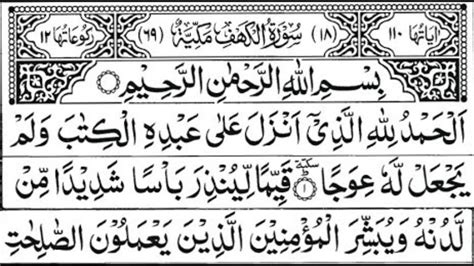 اٰیَاتُهَا ۱۱۰ (۱۸) سُوْرَةُ الْكَهْفِ مَكِّيَّةٌ (۶۹) رُكُوْعَاتُهَا ۱۲
بِسْمِ اللّٰهِ الرَّحْمٰنِ الرَّحِيْمِ
اَلْحَمْدُ لِلّٰهِ الَّذِيْۤ اَنْزَلَ عَلٰى عَبْدِهِ الْكِتٰبَ وَلَمْ
يَجْعَلْ لَّهٗ عِوَجًا ؕ سكتة ۱ قَيِّمًا لِّيُنْذِرَ بَاْسًا شَدِيْدًا مِّنْ
لَّدُنْهُ وَيُبَشِّرَ الْمُؤْمِنِيْنَ الَّذِيْنَ يَعْمَلُوْنَ الصّٰلِحٰتِ